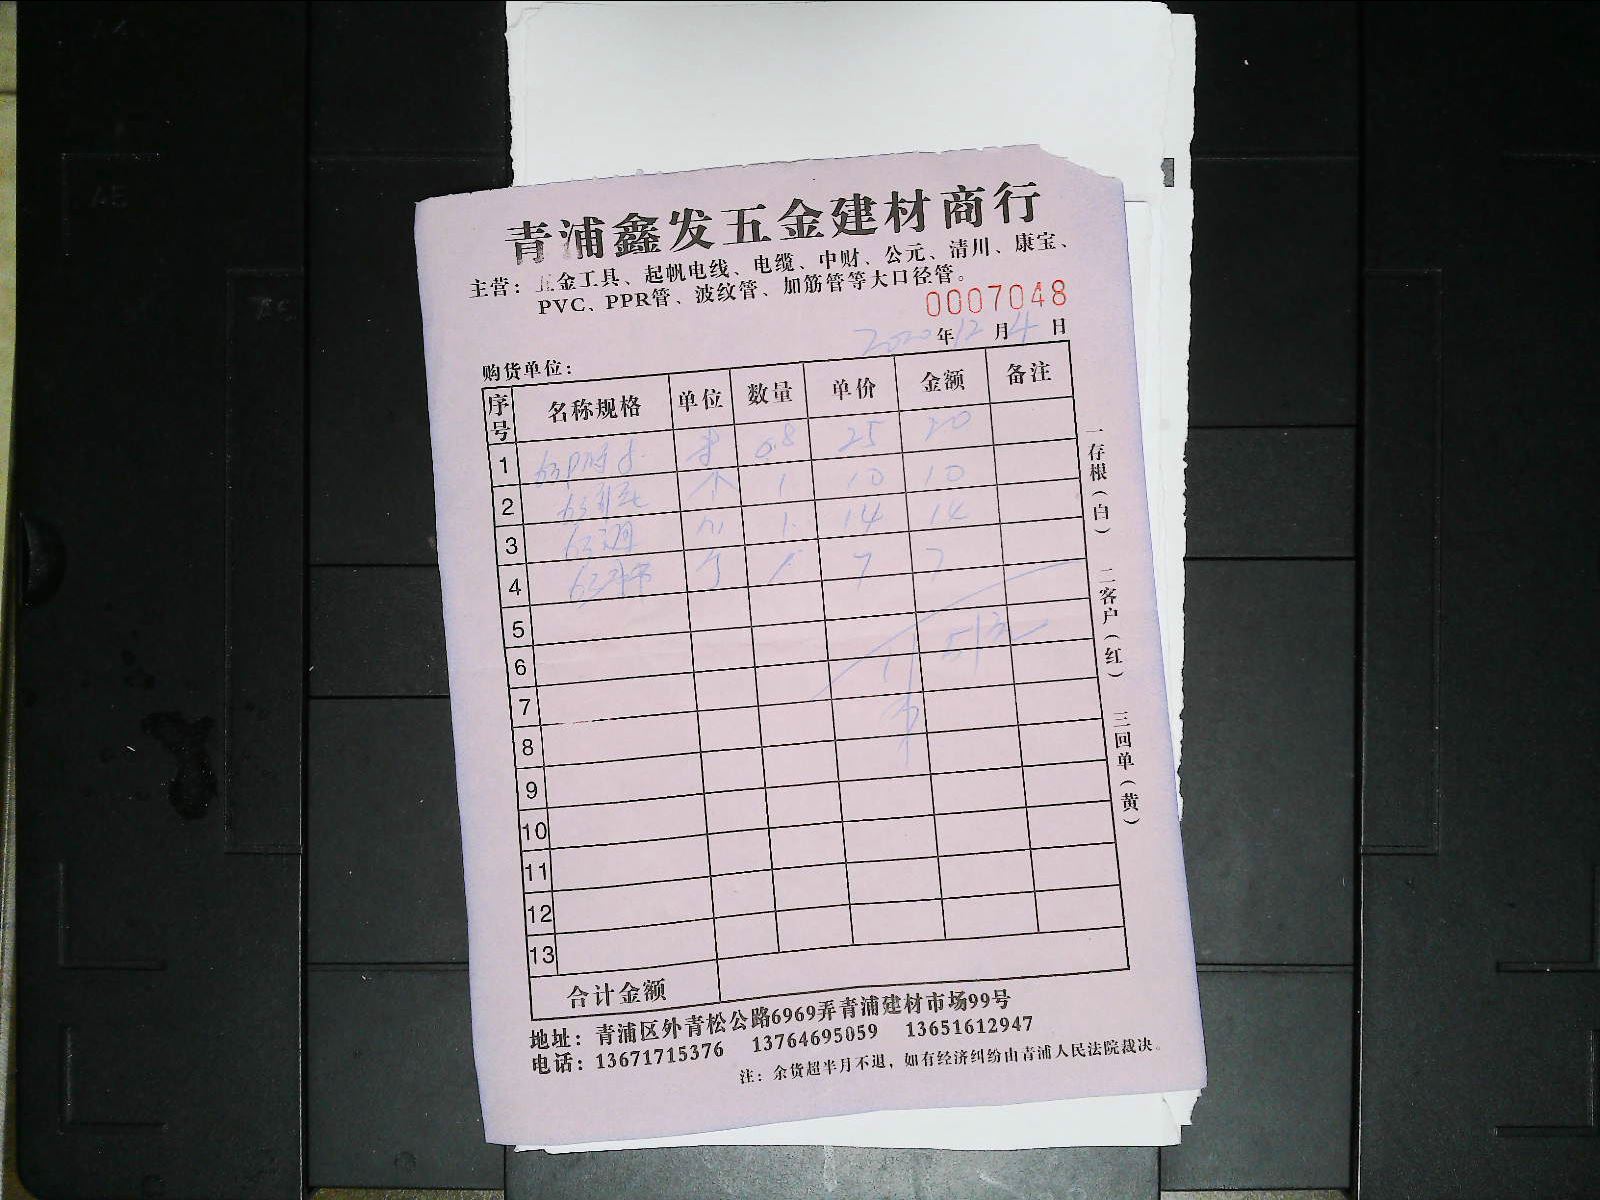 青浦鑫发五金建材商行
主营：五金工具、起帆电线、电缆、中财、公元、清川、康宝、
PVC、PPR管、波纹管、加筋管等大口径管。
0007048
2020年12月4日
购货单位：
序号 名称规格 单位 数量 单价 金额 备注
1 63 米 0.8 25 20
2 63 个 1 10 10
3 63 1 14 14
4 63 个 1 7 7
5
6 51元
7
8
9
10
11
12
13
合计金额
一存根（白） 二客户（红） 三回单（黄）
地址：青浦区外青松公路6969弄青浦建材市场99号
电话：13671715376 13764695059 13651612947
注：余货超半月不退，如有经济纠纷由青浦人民法院裁决。